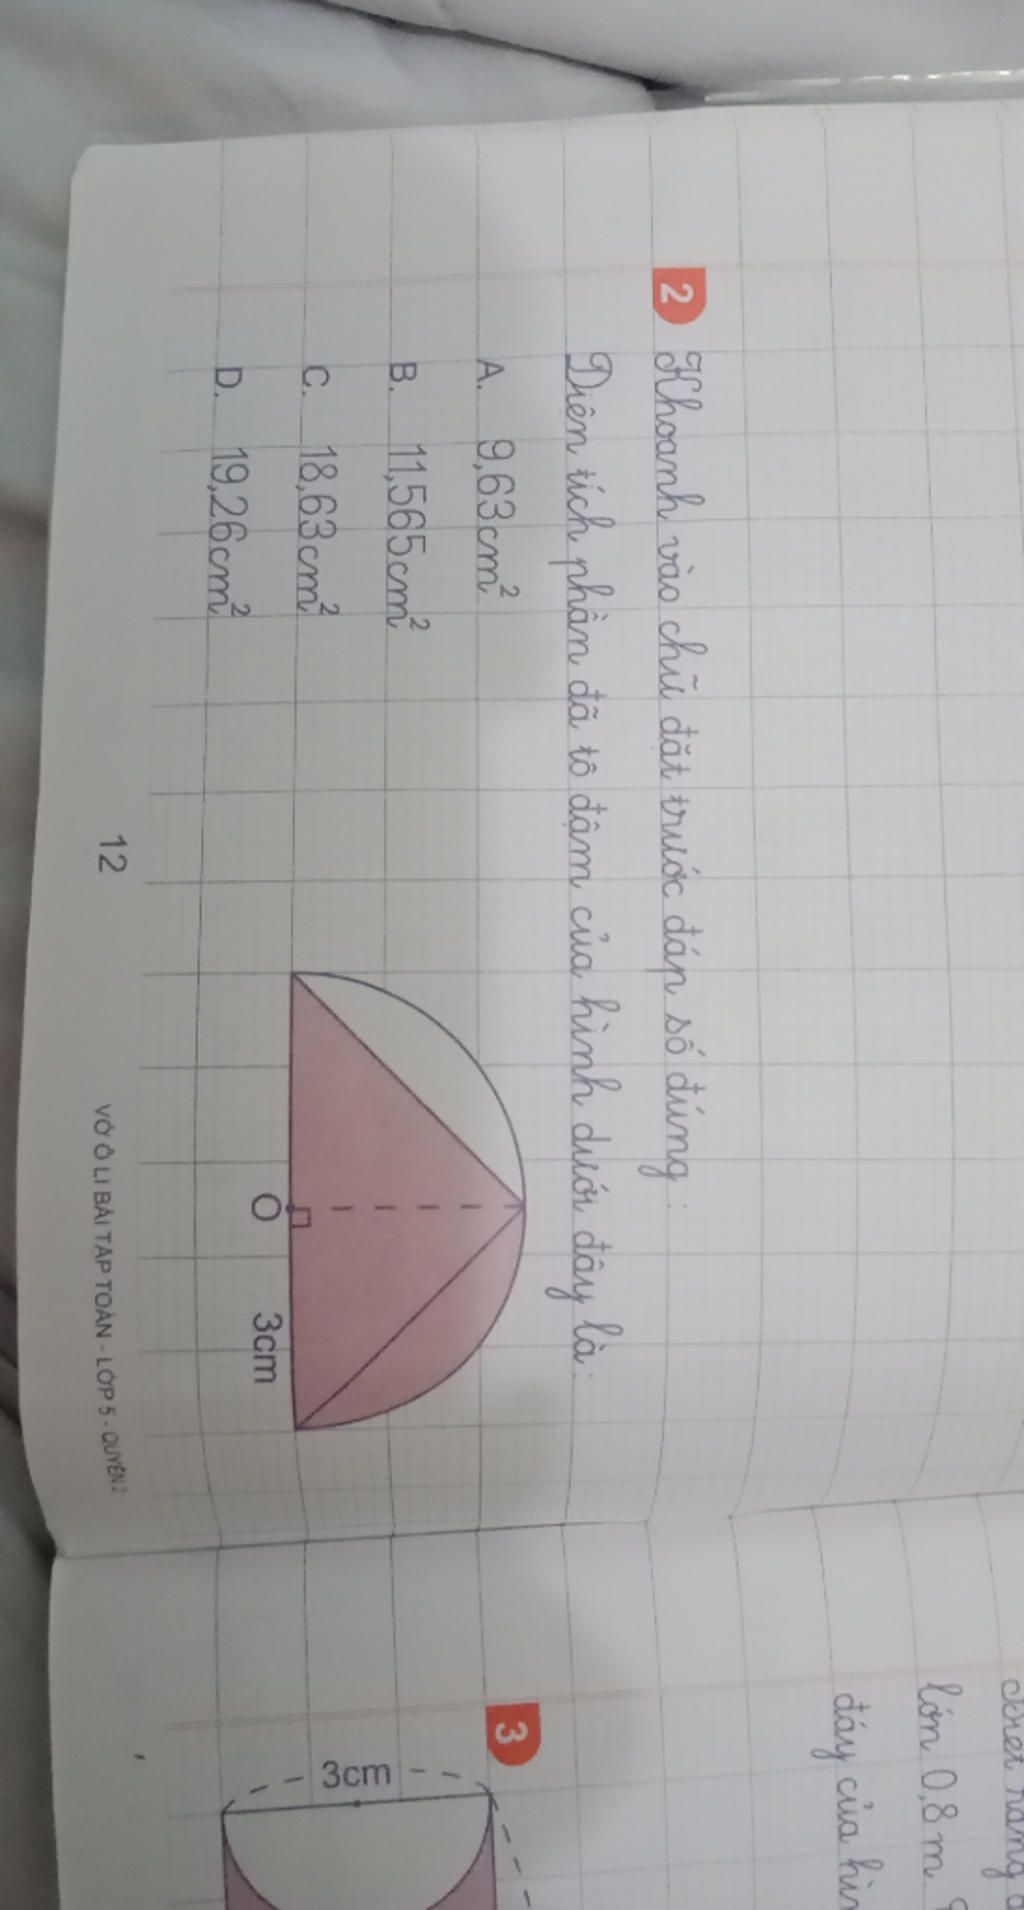 2 Khoanh vào chữ đặt trước đáp số đúng:
Diện tích phần đã tô đậm của hình dưới đây là:
A. 9,63cm²
B. 11,565cm²
C. 18,63cm²
D. 19,26cm²
O 3cm
12
VỞ Ô LI BÀI TẬP TOÁN - LỚP 5 - QUYỂN 2
lớn 0,8m
đáy của
3
3cm